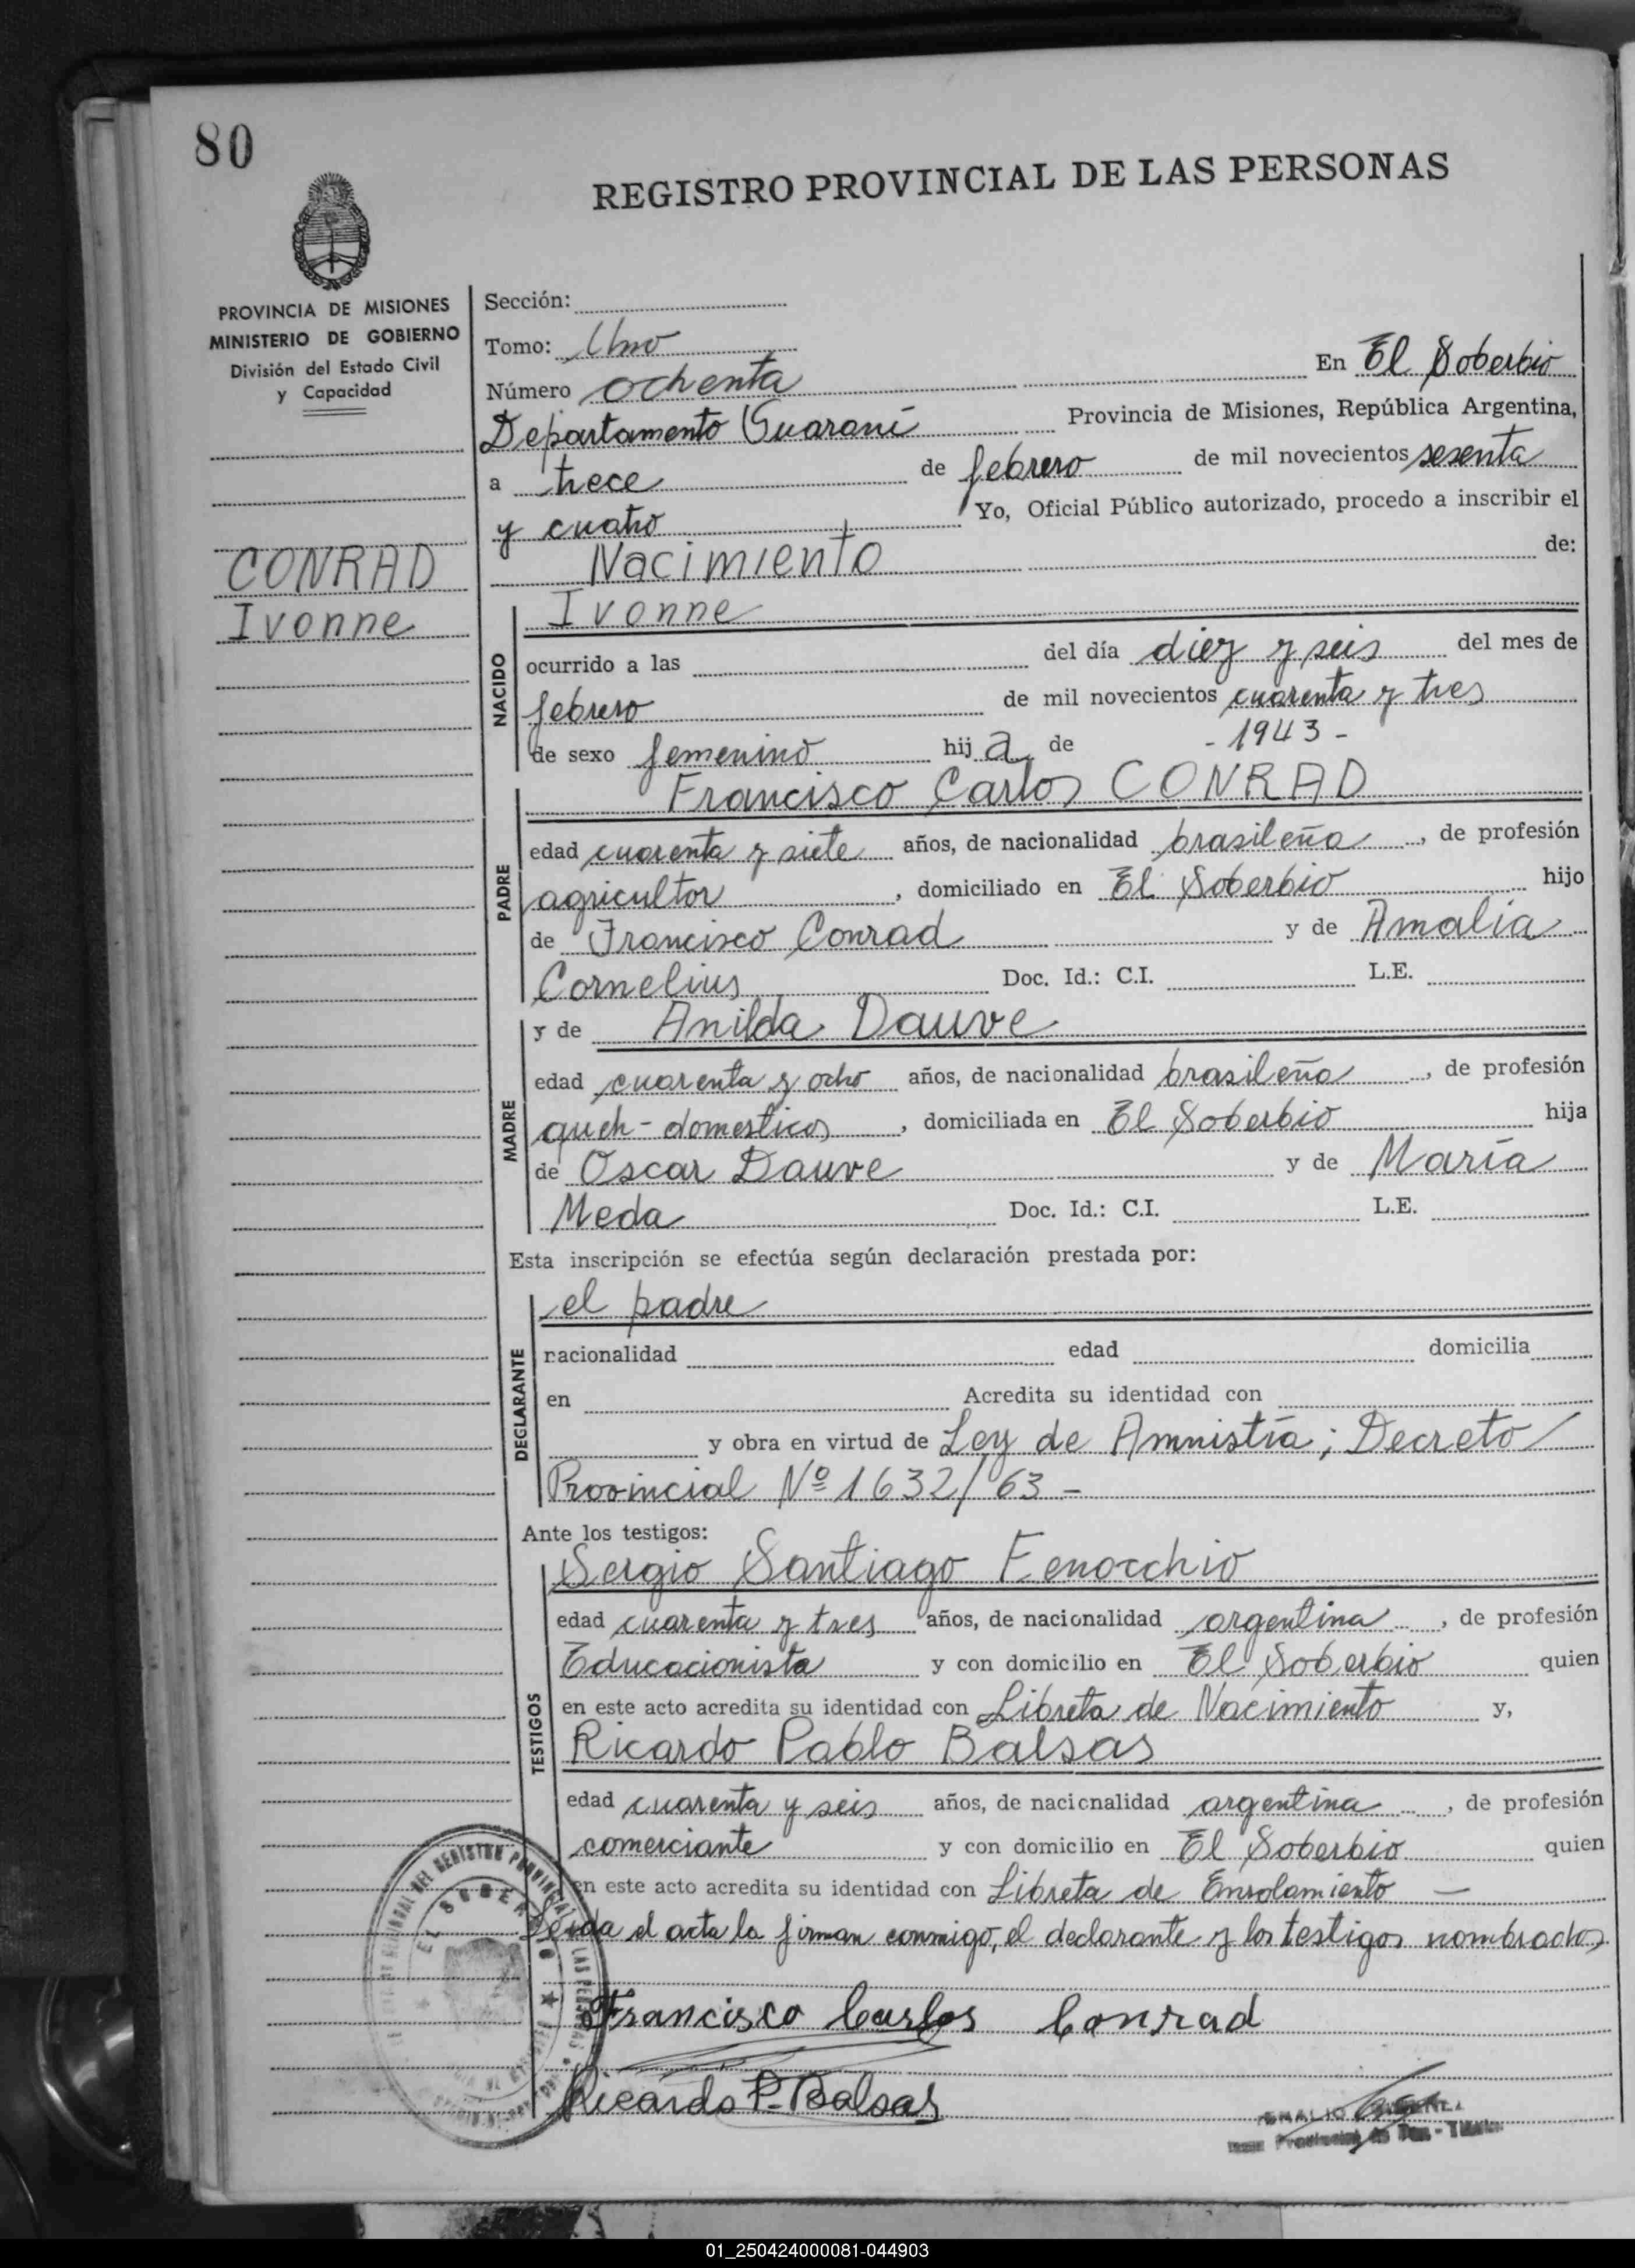 80
REGISTRO PROVINCIAL DE LAS PERSONAS
PROVINCIA DE MISIONES
MINISTERIO DE GOBIERNO
División del Estado Civil
y Capacidad
CONRAD
Ivonne
Sección:
Tomo: Uno
Número ochenta En El Soberbio
Departamento Guaraní Provincia de Misiones, República Argentina,
a trece de febrero de mil novecientos sesenta
y cuatro Yo, Oficial Público autorizado, procedo a inscribir el
Nacimiento de:
NACIDO
Ivonne
ocurrido a las del día diez y seis del mes de
febrero de mil novecientos cuarenta y tres
de sexo femenino hija de - 1943 -
PADRE
Francisco Carlos CONRAD
edad cuarenta y siete años, de nacionalidad brasileña, de profesión
agricultor, domiciliado en El Soberbio hijo
de Francisco Conrad y de Amalia
Cornelius Doc. Id.: C.I. L.E.
MADRE
y de Anilda Dauve
edad cuarenta y ocho años, de nacionalidad brasileña, de profesión
queh-domesticos, domiciliada en El Soberbio hija
de Oscar Dauve y de María
Meda Doc. Id.: C.I. L.E.
Esta inscripción se efectúa según declaración prestada por:
DECLARANTE
el padre
nacionalidad edad domicilia
en Acredita su identidad con
y obra en virtud de Ley de Amnistía; Decreto
Provincial Nº 1632/63 -
Ante los testigos:
TESTIGOS
Sergio Santiago Fenocchio
edad cuarenta y tres años, de nacionalidad argentina, de profesión
Educacionista y con domicilio en El Soberbio quien
en este acto acredita su identidad con Libreta de Nacimiento y,
Ricardo Pablo Balsas
edad cuarenta y seis años, de nacionalidad argentina, de profesión
comerciante y con domicilio en El Soberbio quien
en este acto acredita su identidad con Libreta de Enrolamiento —
Leida el acta la firman conmigo, el declarante y los testigos nombrados
Francisco Carlos Conrad
Ricardo P. Balsas
01_250424000081-044903